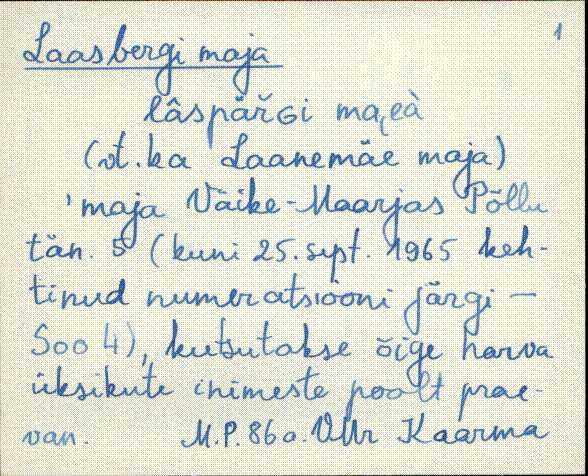 1
Laasbergi maja
lâspäřGi
(vt. ka Laanemäe maja)
'maja Väike-Maarjas Põllu
tän. 5 (kuni 25. sept. 1965 keh-
tinud numeratsiooni järgi -
Soo 4), kutsutakse õige harva
üksikute inimeste poolt prae-
van. M.P. 86 a. VMr Kaarma